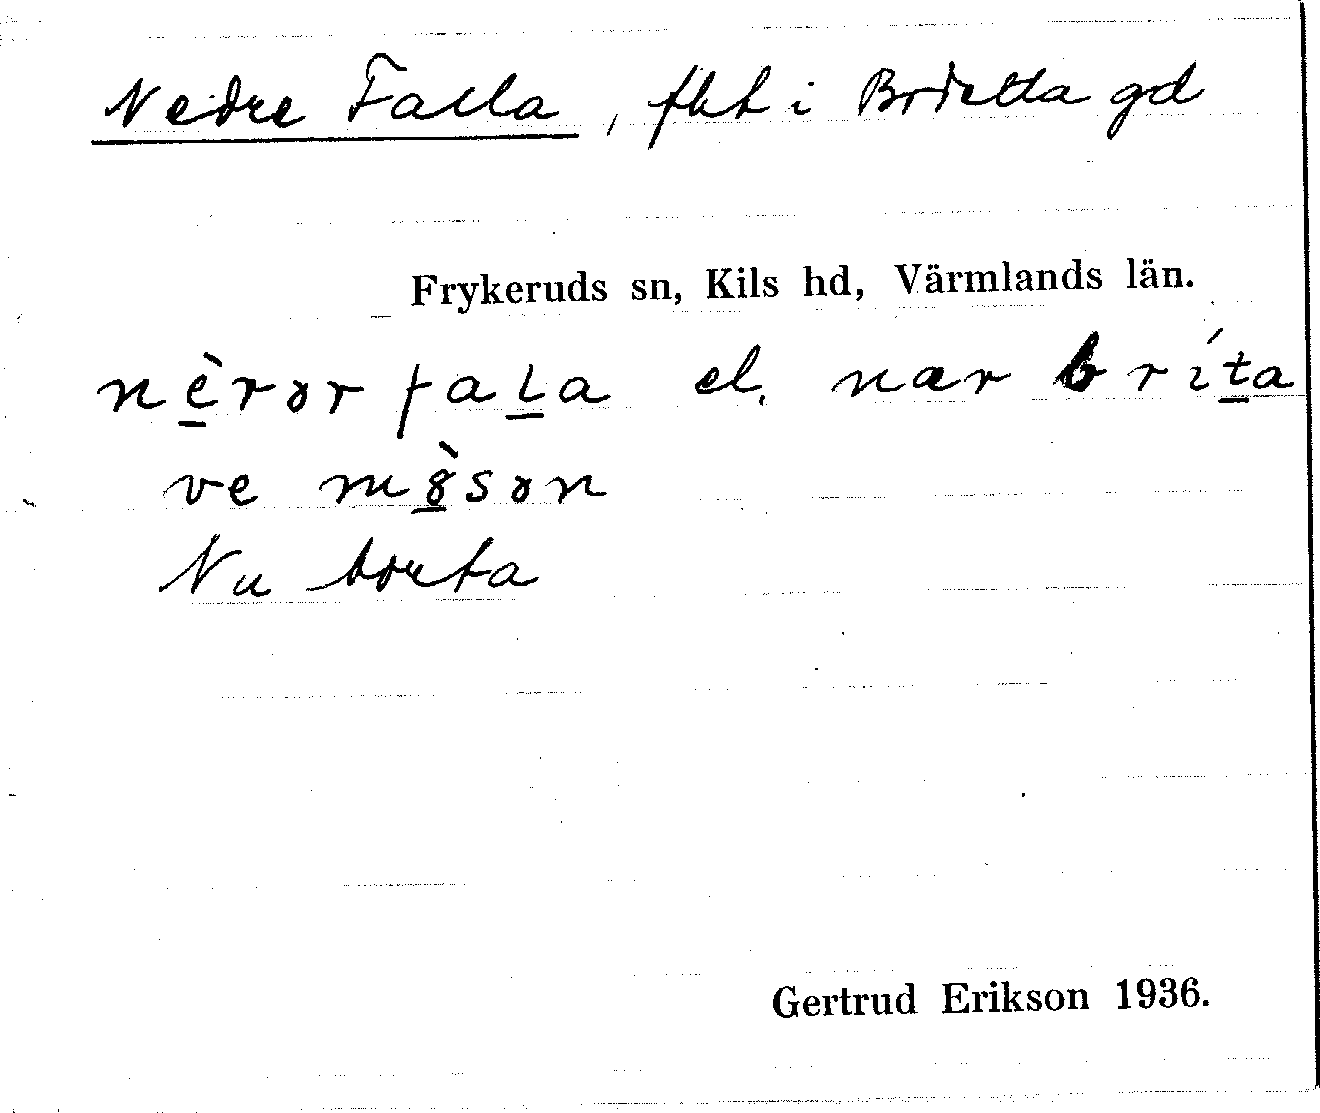 Nedre Falla, fht i Britta gd
Frykeruds sn, Kils hd, Värmlands län.
nè̱rər faḻa el. nær bríṯa
ve mø̱̀sən
Nu borta
Gertrud Erikson 1936.